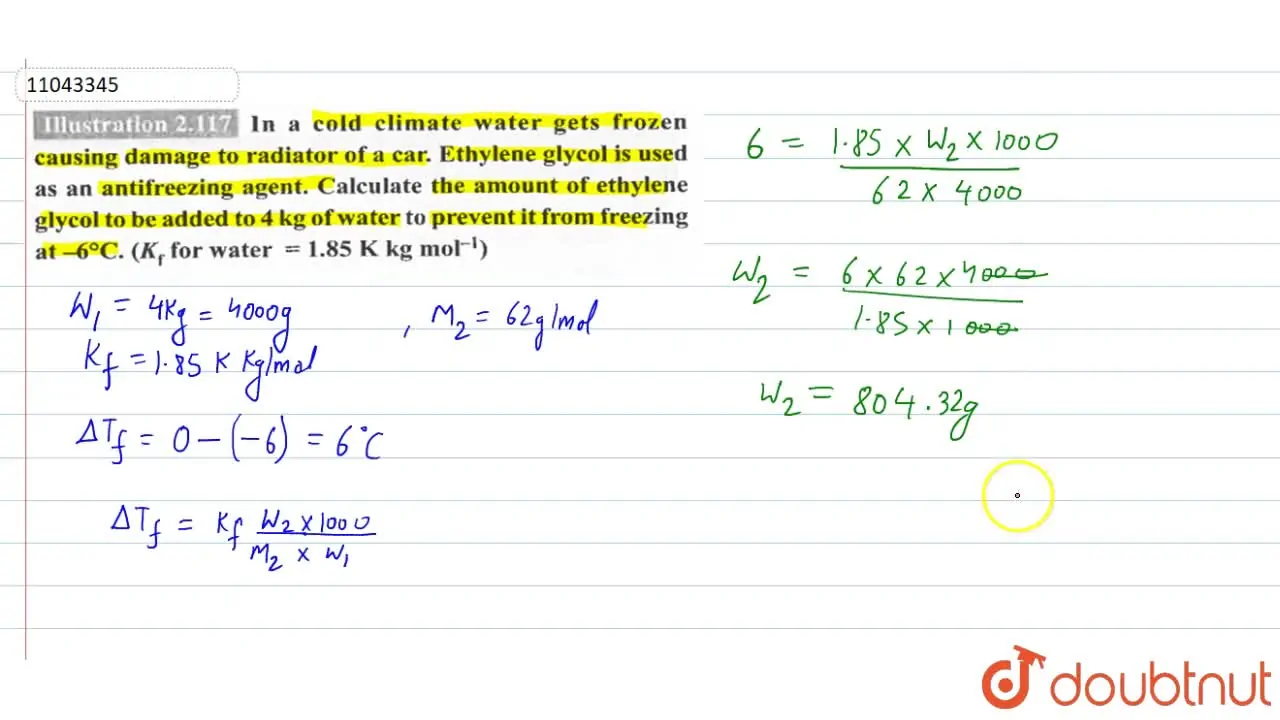 11043345
Illustration 2.117 In a cold climate water gets frozen
causing damage to radiator of a car. Ethylene glycol is used
as an antifreezing agent. Calculate the amount of ethylene
glycol to be added to 4 kg of water to prevent it from freezing
at –6°C. (Kf for water = 1.85 K kg mol–1)
W1 = 4Kg = 4000g , M2 = 62g/mol
Kf = 1.85 K Kg/mol
ΔTf = 0 – (–6) = 6°C
ΔTf = Kf W2 x 1000
M2 x W1
6 = 1.85 x W2 x 1000
62 x 4000
W2 = 6 x 62 x 4000
1.85 x 1000
W2 = 804.32g
doubtnut